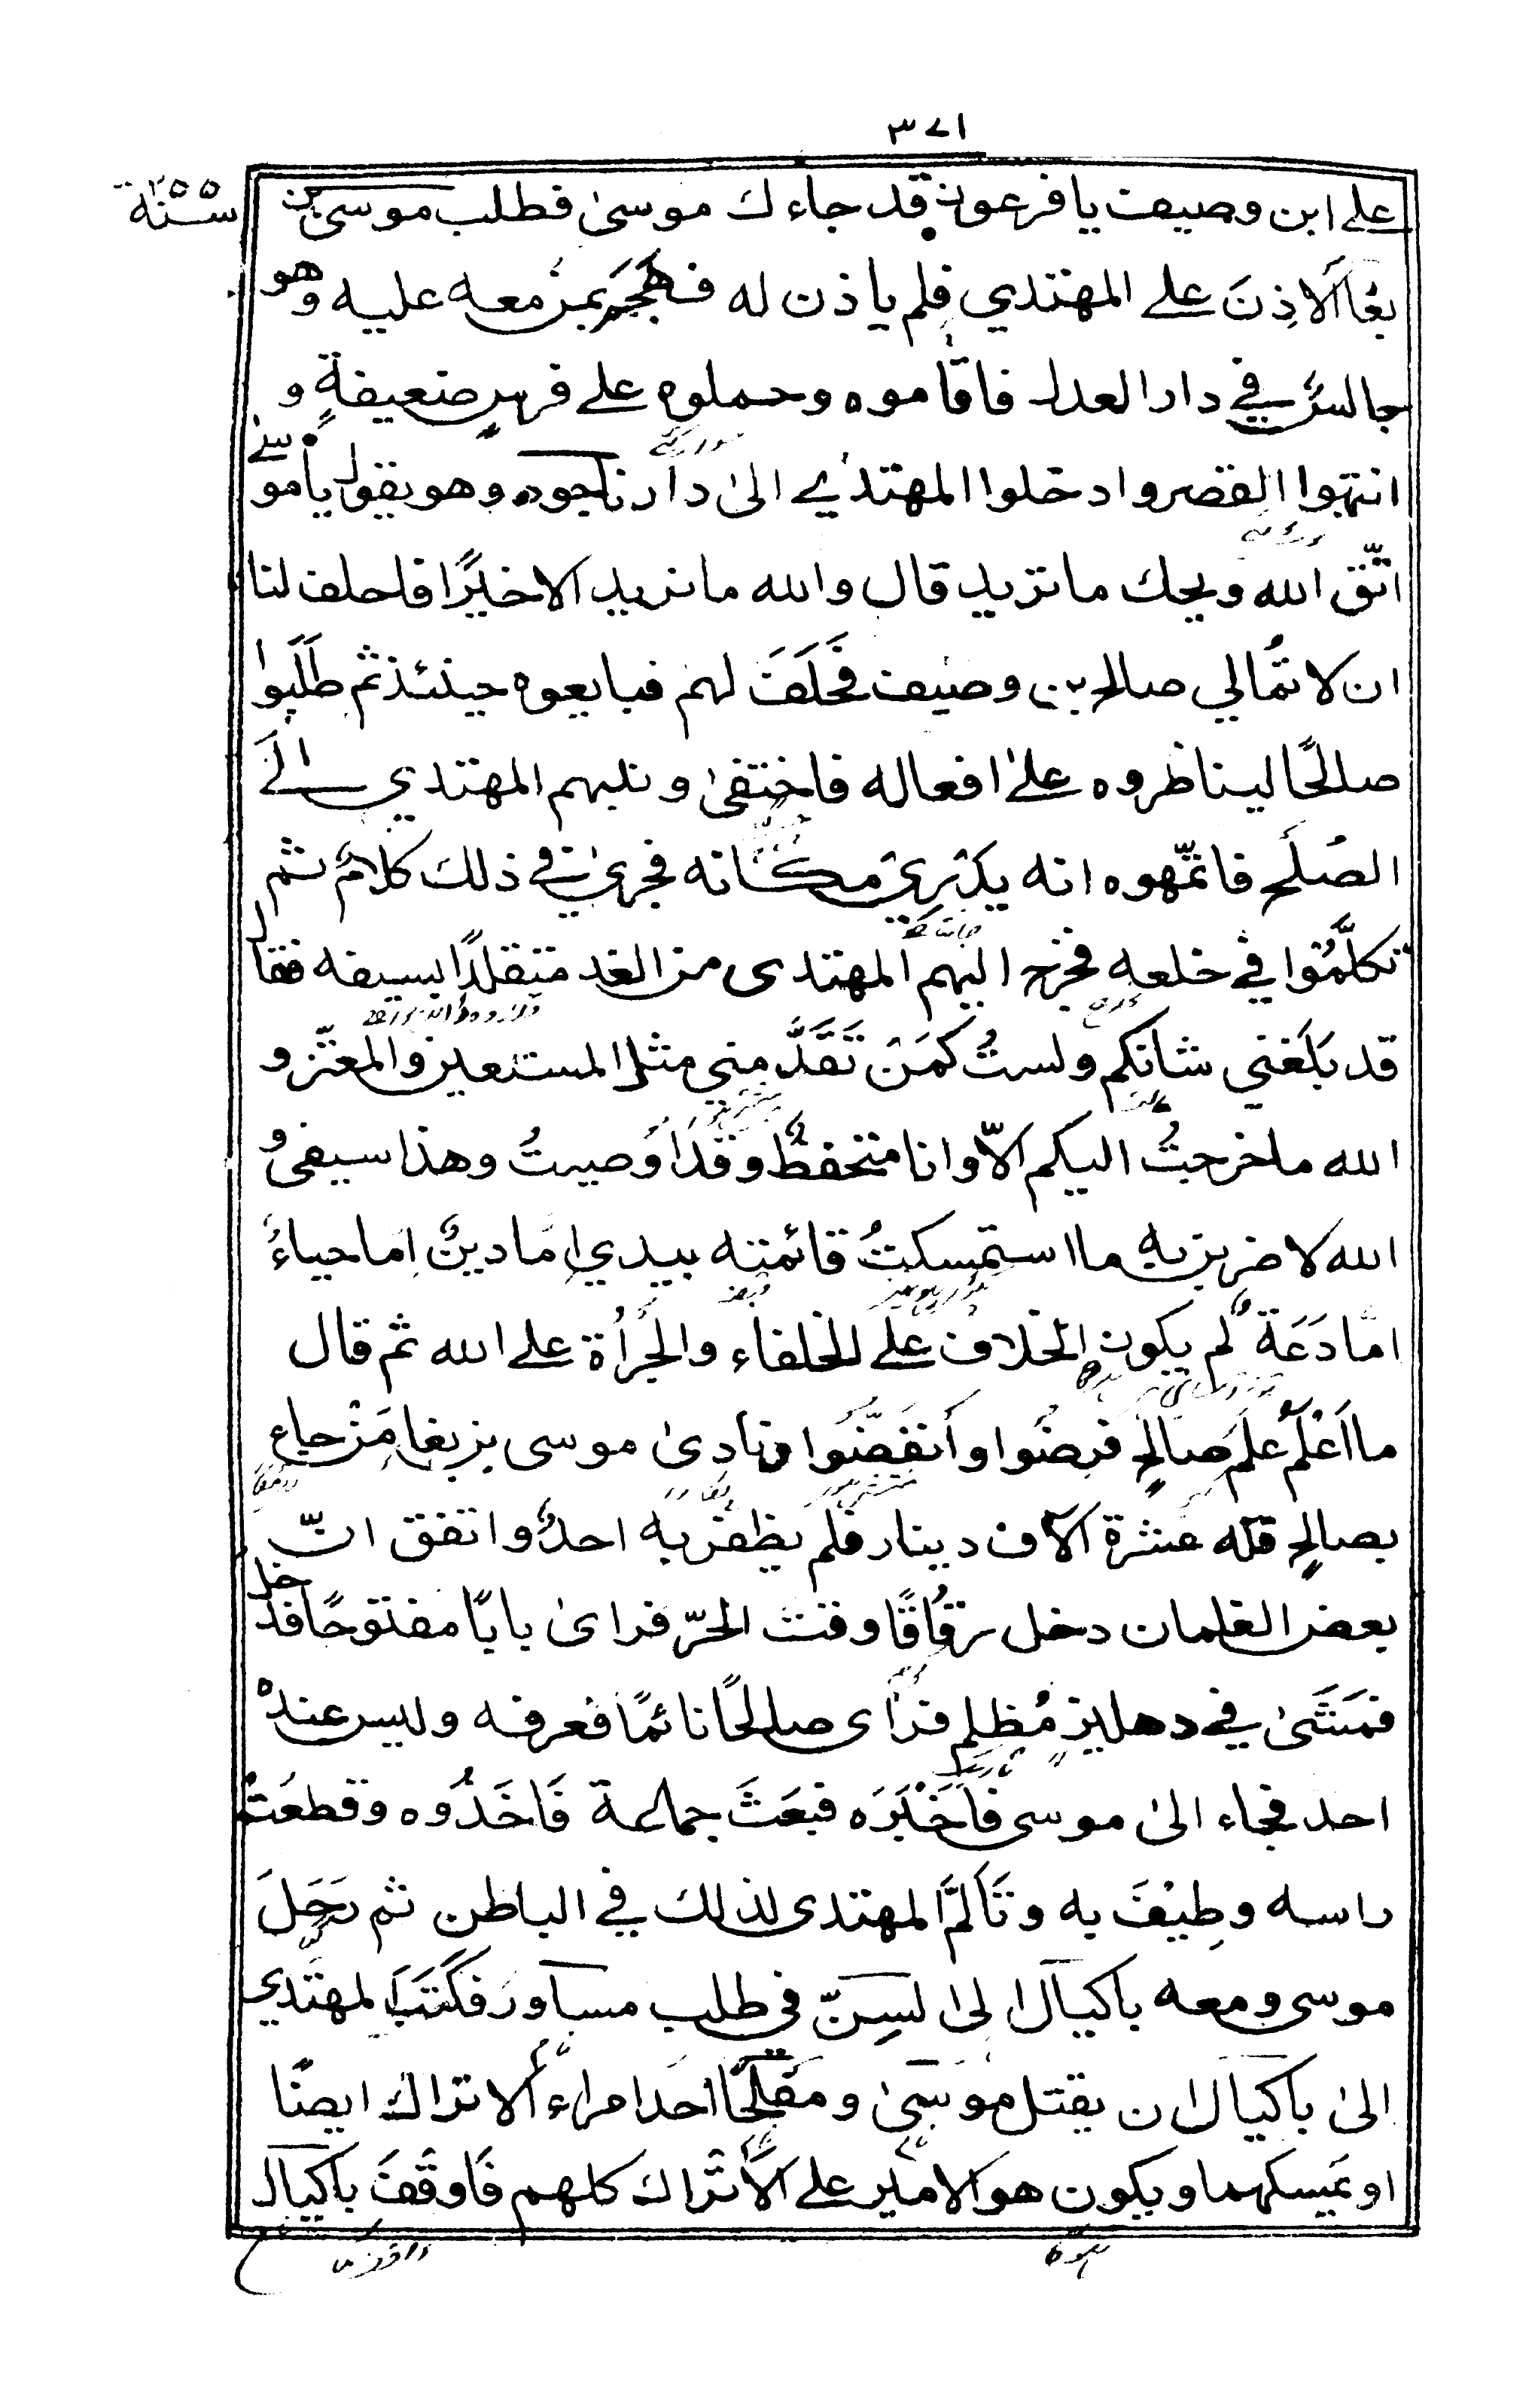 ٣٧١
سنة ٢٥٥
على ابن وصيف يا فرعون قد جاءك موسىٰ فطلب موسى بن
بغا الاذِنَ على المهتدي فلم ياذن له فهَجَمَ بمن معه عليه وهو
جالسٌ في دار العدل فاقاموه وحملوه على فرسٍ ضعيفةٍ و
انتهبوا القصر وادخلوا المهتدي الىٰ دار ناجود وهو يقول يا موسى
اتّق الله ويحك ما تريد قال والله ما نريد الا خيرًا فاحلف لنا
ان لا تُمالي صالح بن وصيف فحَلَفَ لهم فبايعوه حينئذ ثم طَلَبوا
صالحًا ليناظروه علىٰ افعاله فاختفىٰ وندبهم المهتدي الَى
الصُلح فاتّهموه انه يدري مكانه فجرىٰ في ذلك كلامٌ ثم
تكلَّمُوا في خلعه فخرج اليهم المهتدى من الغد متقلدًا بسيفه فقال
قد بَلَغني شانكم ولستُ كمَن تَقَدَّمني مثل المستعين والمعتز و
الله ما خرجتُ اليكم الّا وانا متحفظٌ وقد اَوصيتُ وهذا سيفى و
الله لاضربن به ما استمسكتُ قائمته بيدي اما دينٌ اما حياءٌ
امّا دَعَة لم يكون الخلاف على الخلفاء والجُرأة على الله ثم قال
ما اَعْلَمُ علمَ صالحٍ فرضُوا وانفَضّوا ونادىٰ موسى بن بغا مَن جاء
بصالحٍ فله عشرة الاف دينار فلم يظفر به احدٌ واتفق انّ
بعض الغلمان دخل زقُاقًا وقت الحرّ فراىٰ بابًا مفتوحًا فدخل
فمَشَىٰ في دهليز مُظلم فرأى صالحًا نائمًا فعرفه وليس عنده
احد فجاء الىٰ موسى فاَخْبَرَه فبعَثَ جماعة فَاخَذُوه وقطعَتْ
راسه وطِيْفَ به وتَألَّمَ المهتدى لذلك في الباطن ثم رَحَلَ
موسى ومعه باكيال الى السِنّ في طلب مساور فكَتَبَ المهتدي
الىٰ باكيال ان يقتل موسىٰ ومفلحًا احد امراء الاتراك ايضًا
او يمسكهما ويكون هو الامير على الاَتْراك كلهم فَاوقَفَ باكيال